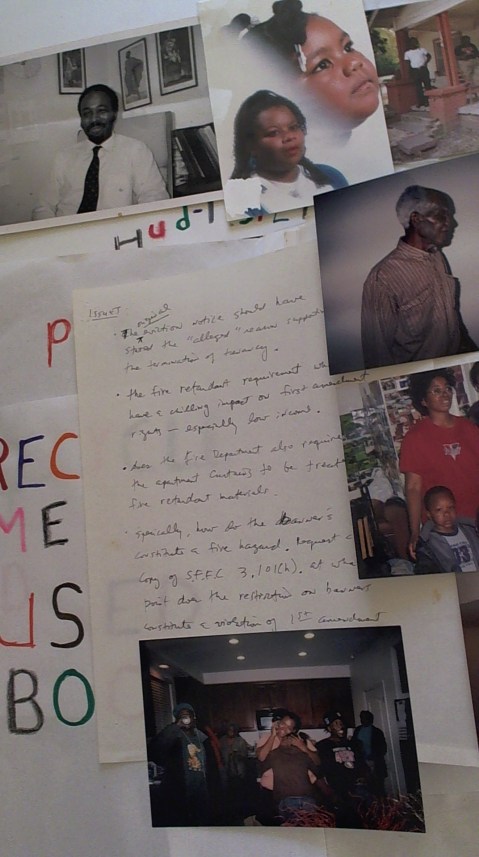 Hud-
P
REC
ME
US
BO
ISSUES
original
• The eviction notice should have
stated the "alleged" reason
the termination of tenancy.
• the fire retardant requirement
have a chilling impact on first amendment
rights — especially low income.
• does the Fire Department also require
the apartment curtains to be
fire retardant materials.
• how do the
constitute a fire hazard. Request a
copy of S.F.F.C 3.101(h). at
Don't does the restriction on banners
constitute a violation of 1st amendment